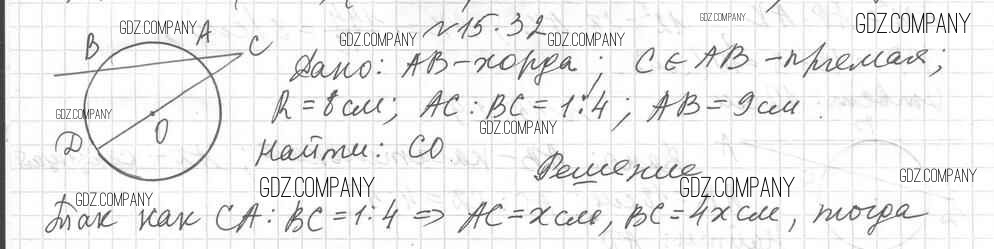 GDZ.COMPANY
№15.32
GDZ.COMPANY
GDZ.COMPANY
GDZ.COMPANY
GDZ.COMPANY
B A C
Дано: AB-хорда; C ∈ AB-прямая;
GDZ.COMPANY
R = 8 см; AC : BC = 1:4; AB = 9 см
GDZ.COMPANY
D O
Найти: CO
Решение
GDZ.COMPANY
GDZ.COMPANY
GDZ.COMPANY
GDZ.COMPANY
Так как CA : BC = 1:4 => AC = x см, BC = 4x см, тогда